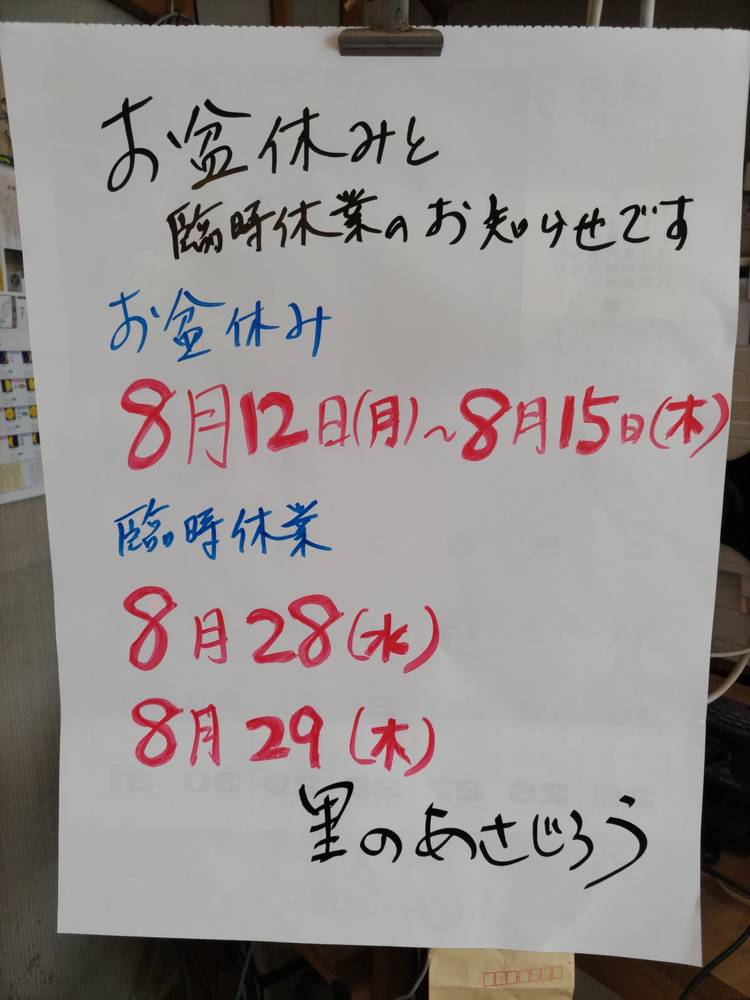 お盆休みと
臨時休業のお知らせです
お盆休み
8月12日(月)～8月15日(木)
臨時休業
8月28(水)
8月29(木)
里のあさじろう